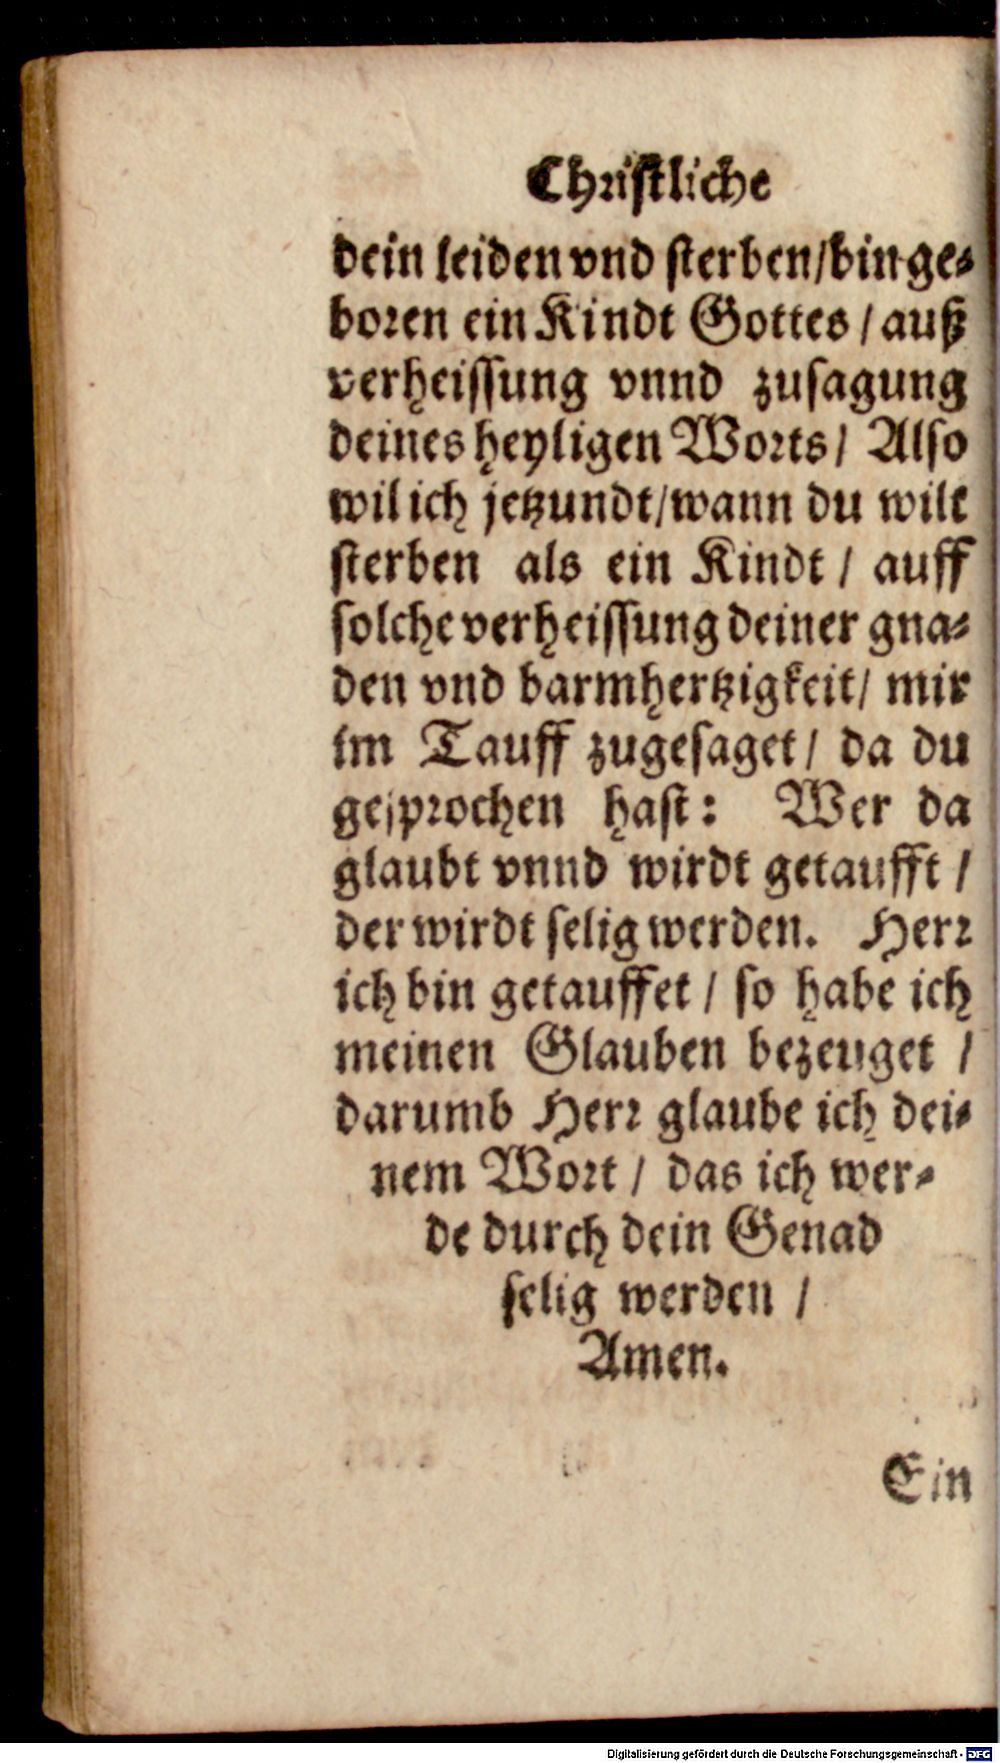 Christliche
dein leiden vnd sterben/bin ge-
boren ein Kindt Gottes / auß
verheissung vnnd zusagung
deines heyligen Worts / Also
wil ich jetzundt/wann du wilt
sterben als ein Kindt / auff
solche verheissung deiner gna-
den vnd barmhertzigkeit/ mir
im Tauff zugesaget / da du
gesprochen hast: Wer da
glaubt vnnd wirdt getaufft /
der wirdt selig werden. Herr
ich bin getauffet / so habe ich
meinen Glauben bezeuget /
darumb Herr glaube ich dei-
nem Wort / das ich wer-
de durch dein Genad
selig werden /
Amen.
Ein
Digitalisierung gefördert durch die Deutsche Forschungsgemeinschaft - DFG